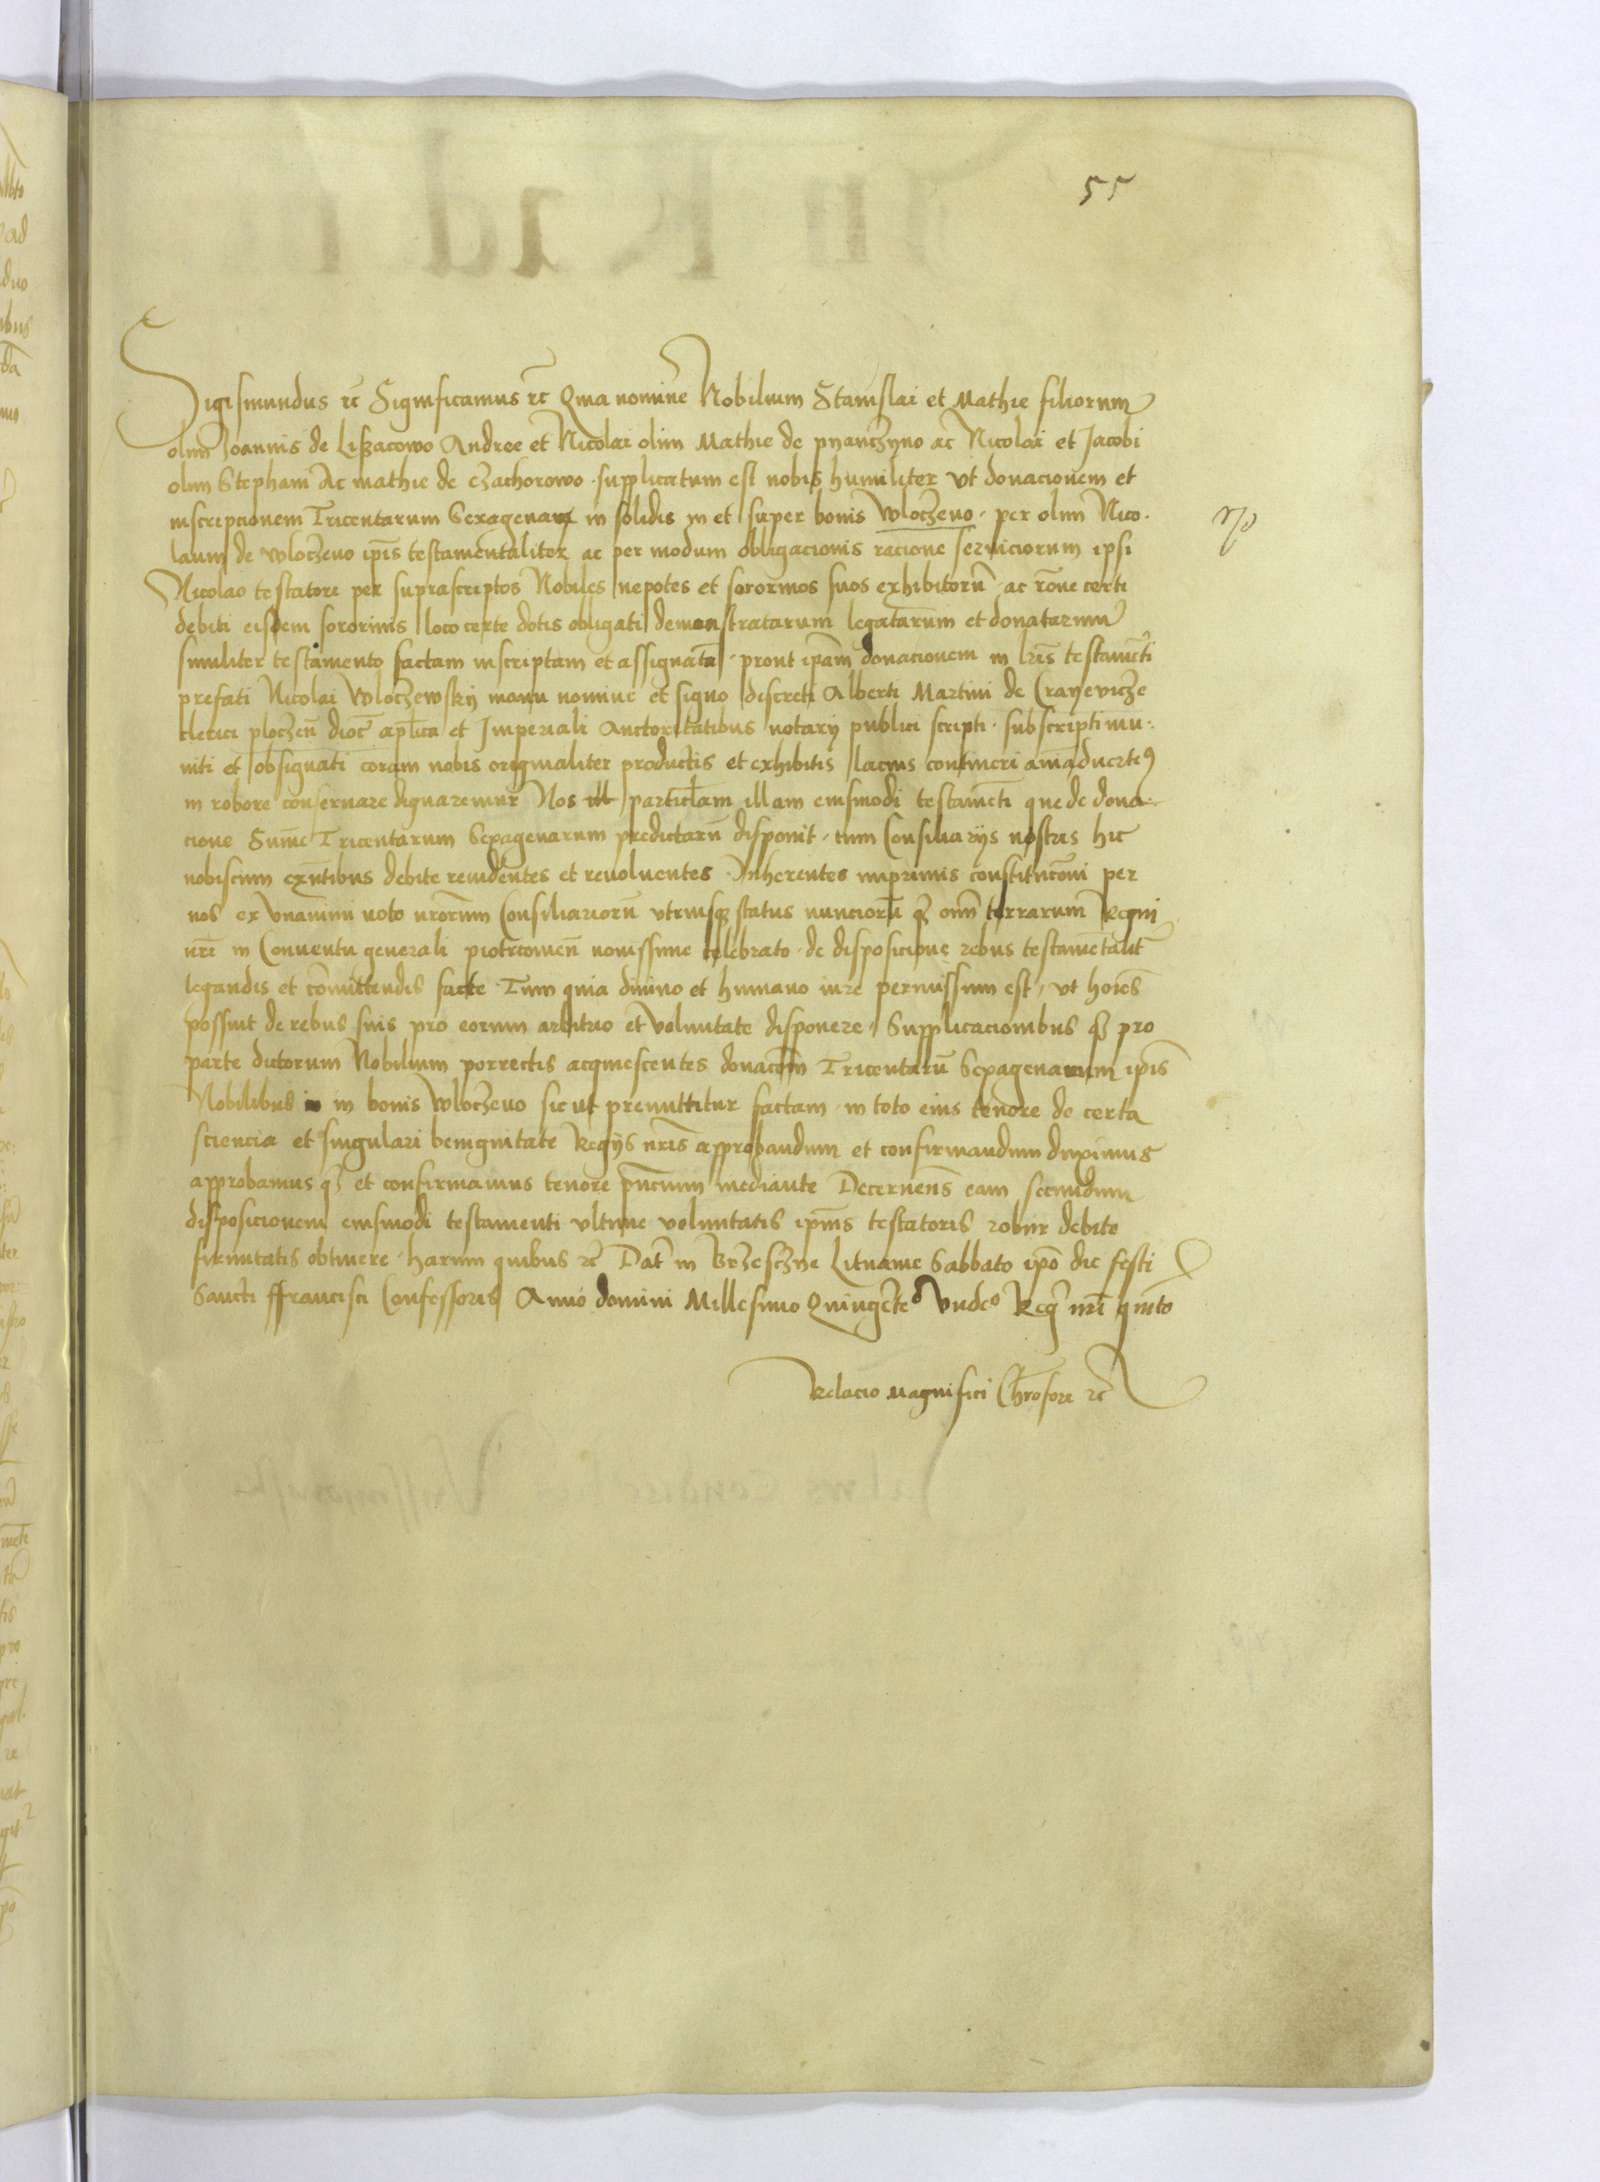 55
Sigismundus rc̄ Significamus rc̄ Qma nomine Nobilium Stanislai et Mathie filiorum
olim Joannis de Lißacowo Andree et Nicolai olim Mathie de pyanczyno ac Nicolai et Jacobi
olim Stephani Ac mathie de czachorowo · supplicatum est nobis humiliter vt donacionem et
inscriptionem Tricentarum Sexagenarum in solidis in et super bonis Wloczeuo · per olim Nico·
laum de wloczeuo ip̄is testamentaliter ac per modum obligacionis racione seruiciorum ipsi
Nicolao testatori per suprascriptos Nobiles nepotes et sororinos suos exhibitorū ac rōne certi
debiti eisdem sororinis loco certe dotis obligati demonstratarum legatarum et donatarum
similiter testamento factam inscriptam et assignatā · prout ip̄am donacionem in lr̄is testamēti
prefati Nicolai Wloczewskij manu nomine et signo discreti Alberti Martini de Crayevicze
clerici ploczeñ dioc̄ ap̄lica et Imperiali Auctoritatibus notarij publici scripti · subscripti mu:
niti et obsignati coram nobis originaliter productis et exhibitis lacius contineri aīaduerte9
in robore conseruare dignaremur Nos ill particulam illam eiusmodi testamēti que de dona·
cione Sum̄e Tricentarum Sexagenarum predictarū disponit · cum Consiliarijs nostris hic
nobiscum exn̄tibus debite reuidentes et reuoluentes Inherentes inprimis constitucōni per
nos ex vnanimi uoto nrōrum Consiliariorū vtriusq3 status nuncioru q3 om̄ terrarum Regni
nr̄i in Conuentu generali piotrcouieñ nouissime celebrato · de disposicione rebus testamētalit̄
legandis et cōmittendis facte · Tum quia diuino et humano iure permissum est, vt hoīes
possint de rebus suis pro eorum arbitrio et voluntate disponere · Supplicacionibus q3 pro
parte dictorum Nobilium porrectis acquiescentes donacōm Tricentarū Sexagenarum ip̄is
Nobilibus in bonis Wloczeuo sicut premittitur factam · in toto eius tenore de certa
sciencia et singulari benignitate Regijs nr̄is approbandum et confirmandum duximus
approbamus q3 et confirmamus tenore pn̄cium mediante Decernen̄s eam secundum
disposicionem eiusmodi testamenti vltime voluntatis ip̄ius testatoris robur debite
firmitatis obtinere · harum quibus rc̄ Dat̄ in Brzesczye Lituanie Sabbato ip̄o die festi
Sancti ffrancisci Confessoris Anno domini Millesimo Quingēteo Vndeo Regⁱ nr̄i quīto
Relacio magnifici Chr̄ofori rc̄